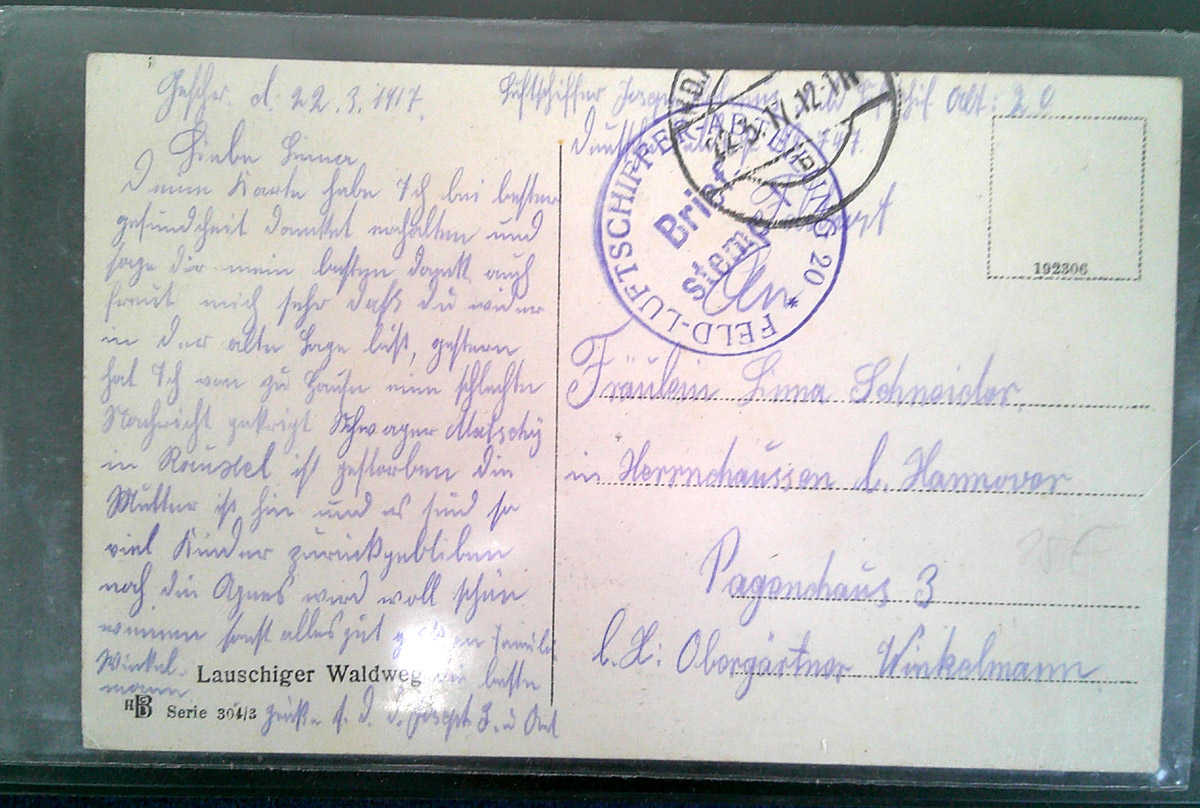 d. 22.3.1917.
Liebe Linna
Deine Karte habe Ich bei bester
gesundheit danket erhalten und
sage dir mein besten dank auch
freut mich sehr daß du wider
in der alte Lage bist, gestern
hat Ich von zu Hause eine schlechte
Nachricht gekrigt Schwager
in ist gestorben die
Mutter ist hin und es sind so
viel Kinder zurückgebliben
noch die Agnes wird woll schön
weinen sonst alles gut Familie
Winkel-
mann beste
Grüße s. d. d. Joseph
Lauschiger Waldweg
HB Serie 304/3
Luftschiffer Abt: 20
747.
FELD-LUFTSCHIFFER-ABTEILUNG 20 *
Brief-
stempel
22.3.17.12-1N
192306
An
Fräulein Linna Schneider
in Herrnhaussen b. Hannover
Pagenhaus 3
b. H: Obergärtner Winkelmann